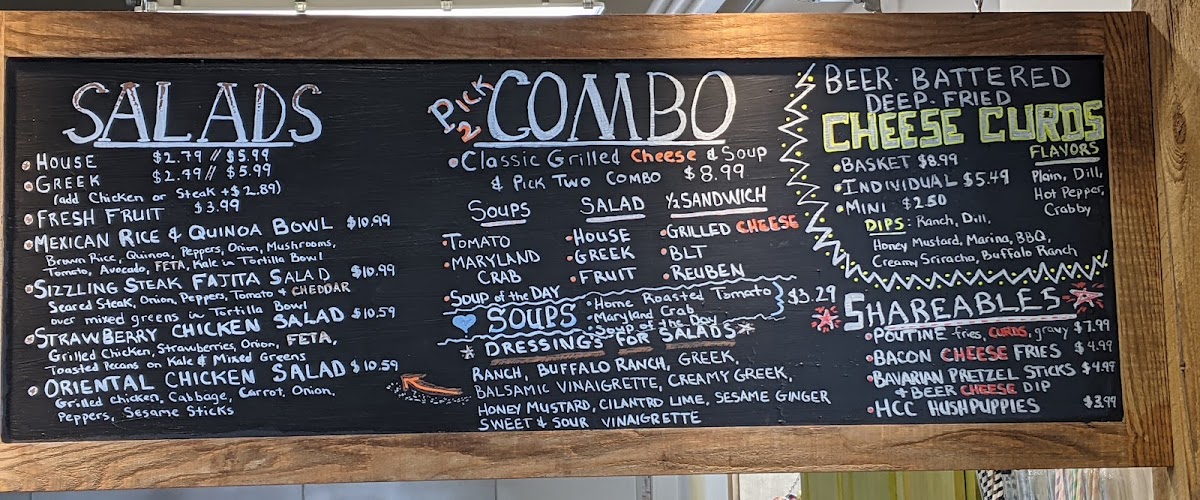 SALADS
• HOUSE $2.79 // $5.99
• GREEK $2.79 // $5.99
(add Chicken or Steak +$2.89)
• FRESH FRUIT $3.99
• MEXICAN RICE & QUINOA BOWL $10.99
Brown Rice, Quinoa, Peppers, Onion, Mushrooms,
Tomato, Avocado, FETA, Kale in Tortilla Bowl
• SIZZLING STEAK FAJITA SALAD $10.99
Seared Steak, Onion, Peppers, Tomato & CHEDDAR
over mixed greens in Tortilla Bowl
• STRAWBERRY CHICKEN SALAD $10.59
Grilled Chicken, Strawberries, Onion, FETA,
Toasted Pecans on Kale & Mixed Greens
• ORIENTAL CHICKEN SALAD $10.59
Grilled Chicken, Cabbage, Carrot, Onion,
Peppers, Sesame Sticks
PICK 2 COMBO
• Classic Grilled Cheese & Soup
& Pick Two Combo $8.99
SOUPS
• TOMATO
• MARYLAND
CRAB
• SOUP of the DAY
SALAD
• HOUSE
• GREEK
• FRUIT
½ SANDWICH
• GRILLED CHEESE
• BLT
• REUBEN
SOUPS
• Home Roasted Tomato
• Maryland Crab
• Soup of the Day
$3.29
* DRESSING'S FOR SALADS *
RANCH, BUFFALO RANCH, GREEK,
BALSAMIC VINAIGRETTE, CREAMY GREEK,
HONEY MUSTARD, CILANTRO LIME, SESAME GINGER
SWEET & SOUR VINAIGRETTE
BEER • BATTERED
DEEP • FRIED
CHEESE CURDS
• BASKET $8.99
• INDIVIDUAL $5.49
• MINI $2.50
FLAVORS
Plain, Dill,
Hot Pepper,
Crabby
DIPS: Ranch, Dill,
Honey Mustard, Marina, BBQ,
Creamy Sriracha, Buffalo Ranch
SHAREABLES
• POUTINE fries, CURDS, gravy $7.99
• BACON CHEESE FRIES $4.99
• BAVARIAN PRETZEL STICKS $4.99
& BEER CHEESE DIP
• HCC HUSHPUPPIES $3.99